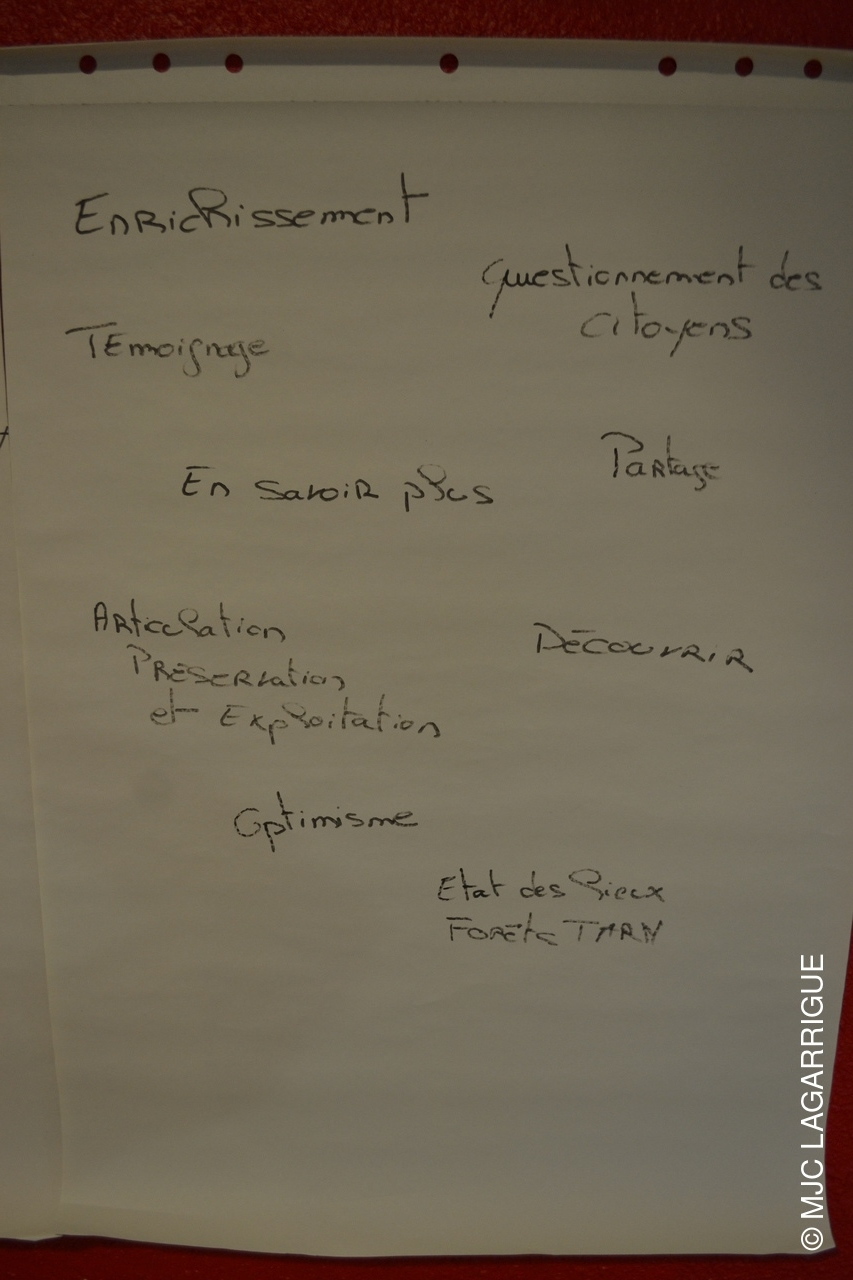 Enrichissement
Questionnement des
citoyens
Témoignage
Partage
En savoir plus
Articulation
Préservation
et Exploitation
Découvrir
Optimisme
Etat des lieux
Forêts TARN
© MJC LAGARRIGUE